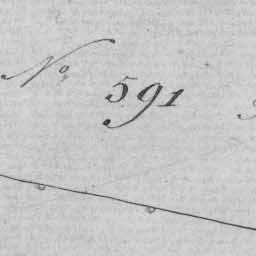 No 591